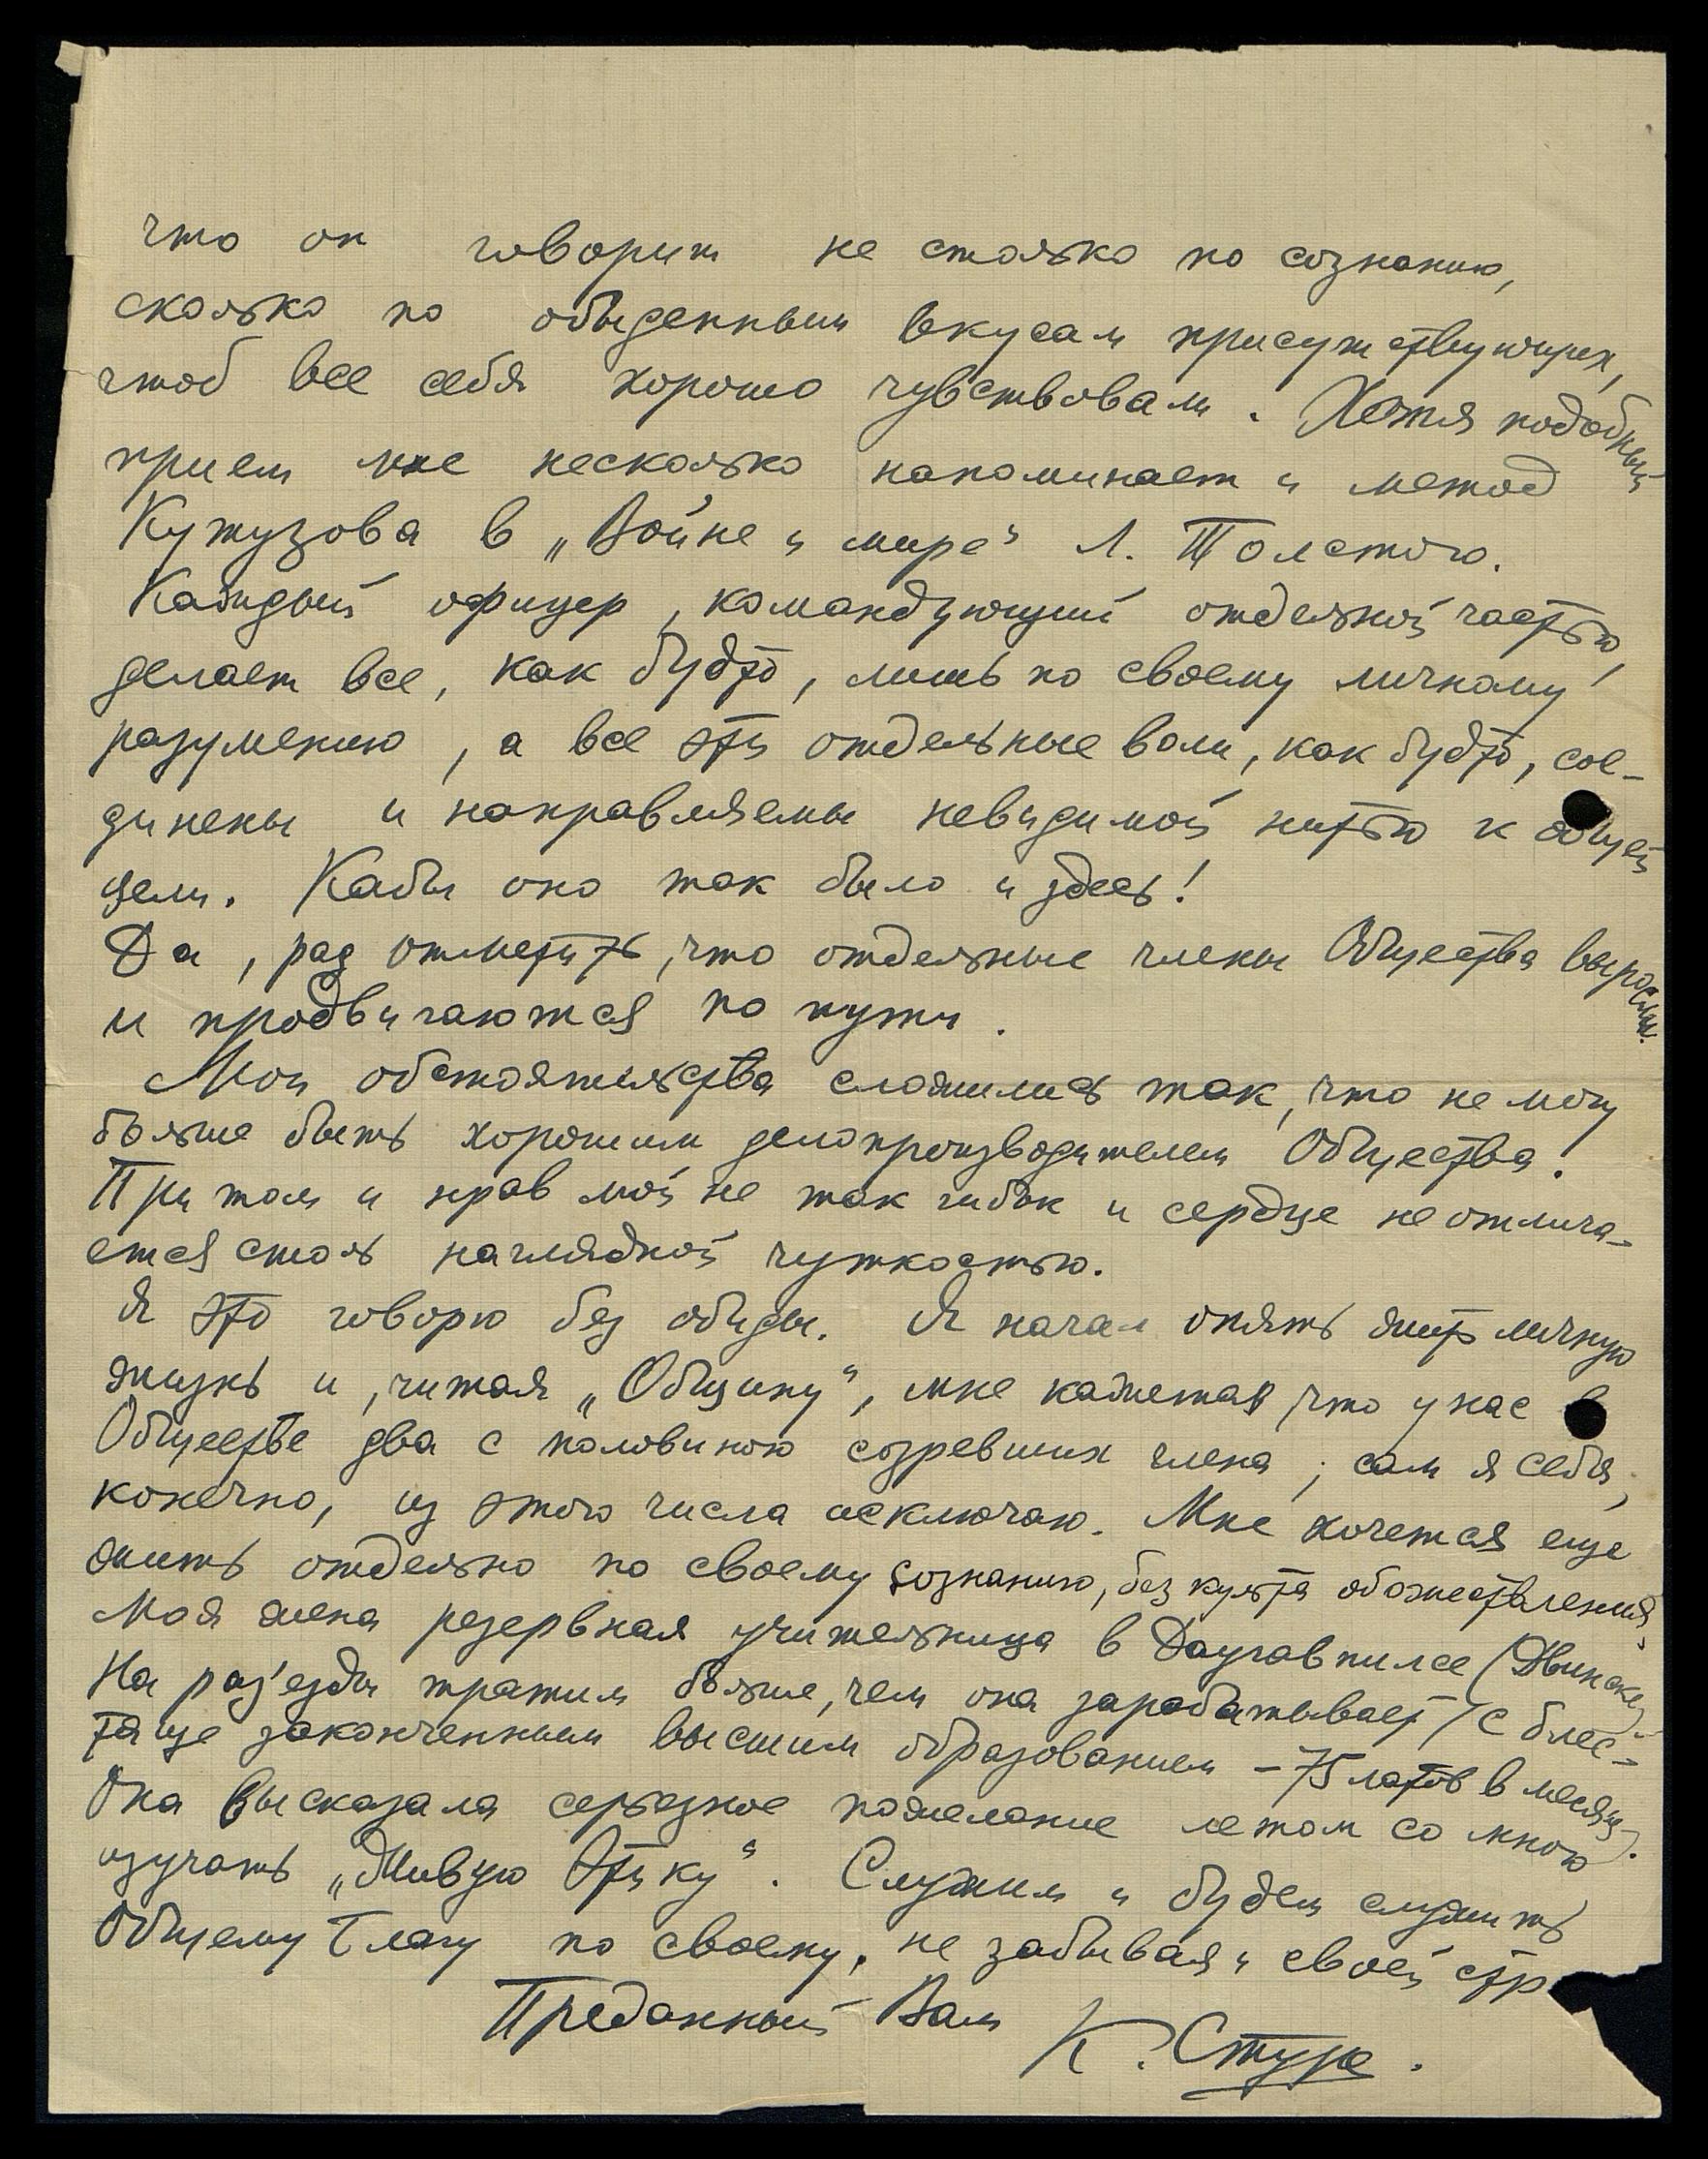 что он говорит не столько по сознанию,
сколько по обыденным вкусам присутствующих,
чтоб все себя хорошо чувствовали. Хотя подобный
прием мне несколько напоминает и метод
Кутузова в „Войне и мире“ Л. Толстого.
Каждый офицер, командующий отдельной частью,
делает все, как будто, лишь по своему личному
разумению, а все эти отдельные воли, как будто, сое-
динены и направляемы невидимой нитью к общей
цели. Кабы оно так было и здесь!
Да, рад отметить, что отдельные члены Общества выросли
и продвигаются по пути.
Мои обстоятельства сложились так, что не могу
больше быть хорошим делопроизводителем Общества.
При том и нрав мой не так гибок и сердце не отлича-
ется столь наглядной чуткостью.
Я это говорю без обиды. Я начал опять жить личную
жизнь и, читая „Общину“, мне кажется, что у нас в
Обществе два с половиною созревших члена; сам я себя,
конечно, из этого числа исключаю. Мне хочется еще
жить отдельно по своему сознанию, без культа обожествления.
Моя жена резервная учительница в Даугавпилсе (Двинске).
На раз'езды тратим больше, чем она зарабатывает (с блес-
тяще законченным высшим образованием – 75 латов в месяц).
Она высказала серьезное пожелание летом со мною
изучать „Живую Этику“. Служим и будем служить
Общему Благу по своему, не забывая и своей стр
Преданный Вам
К. Стуре.